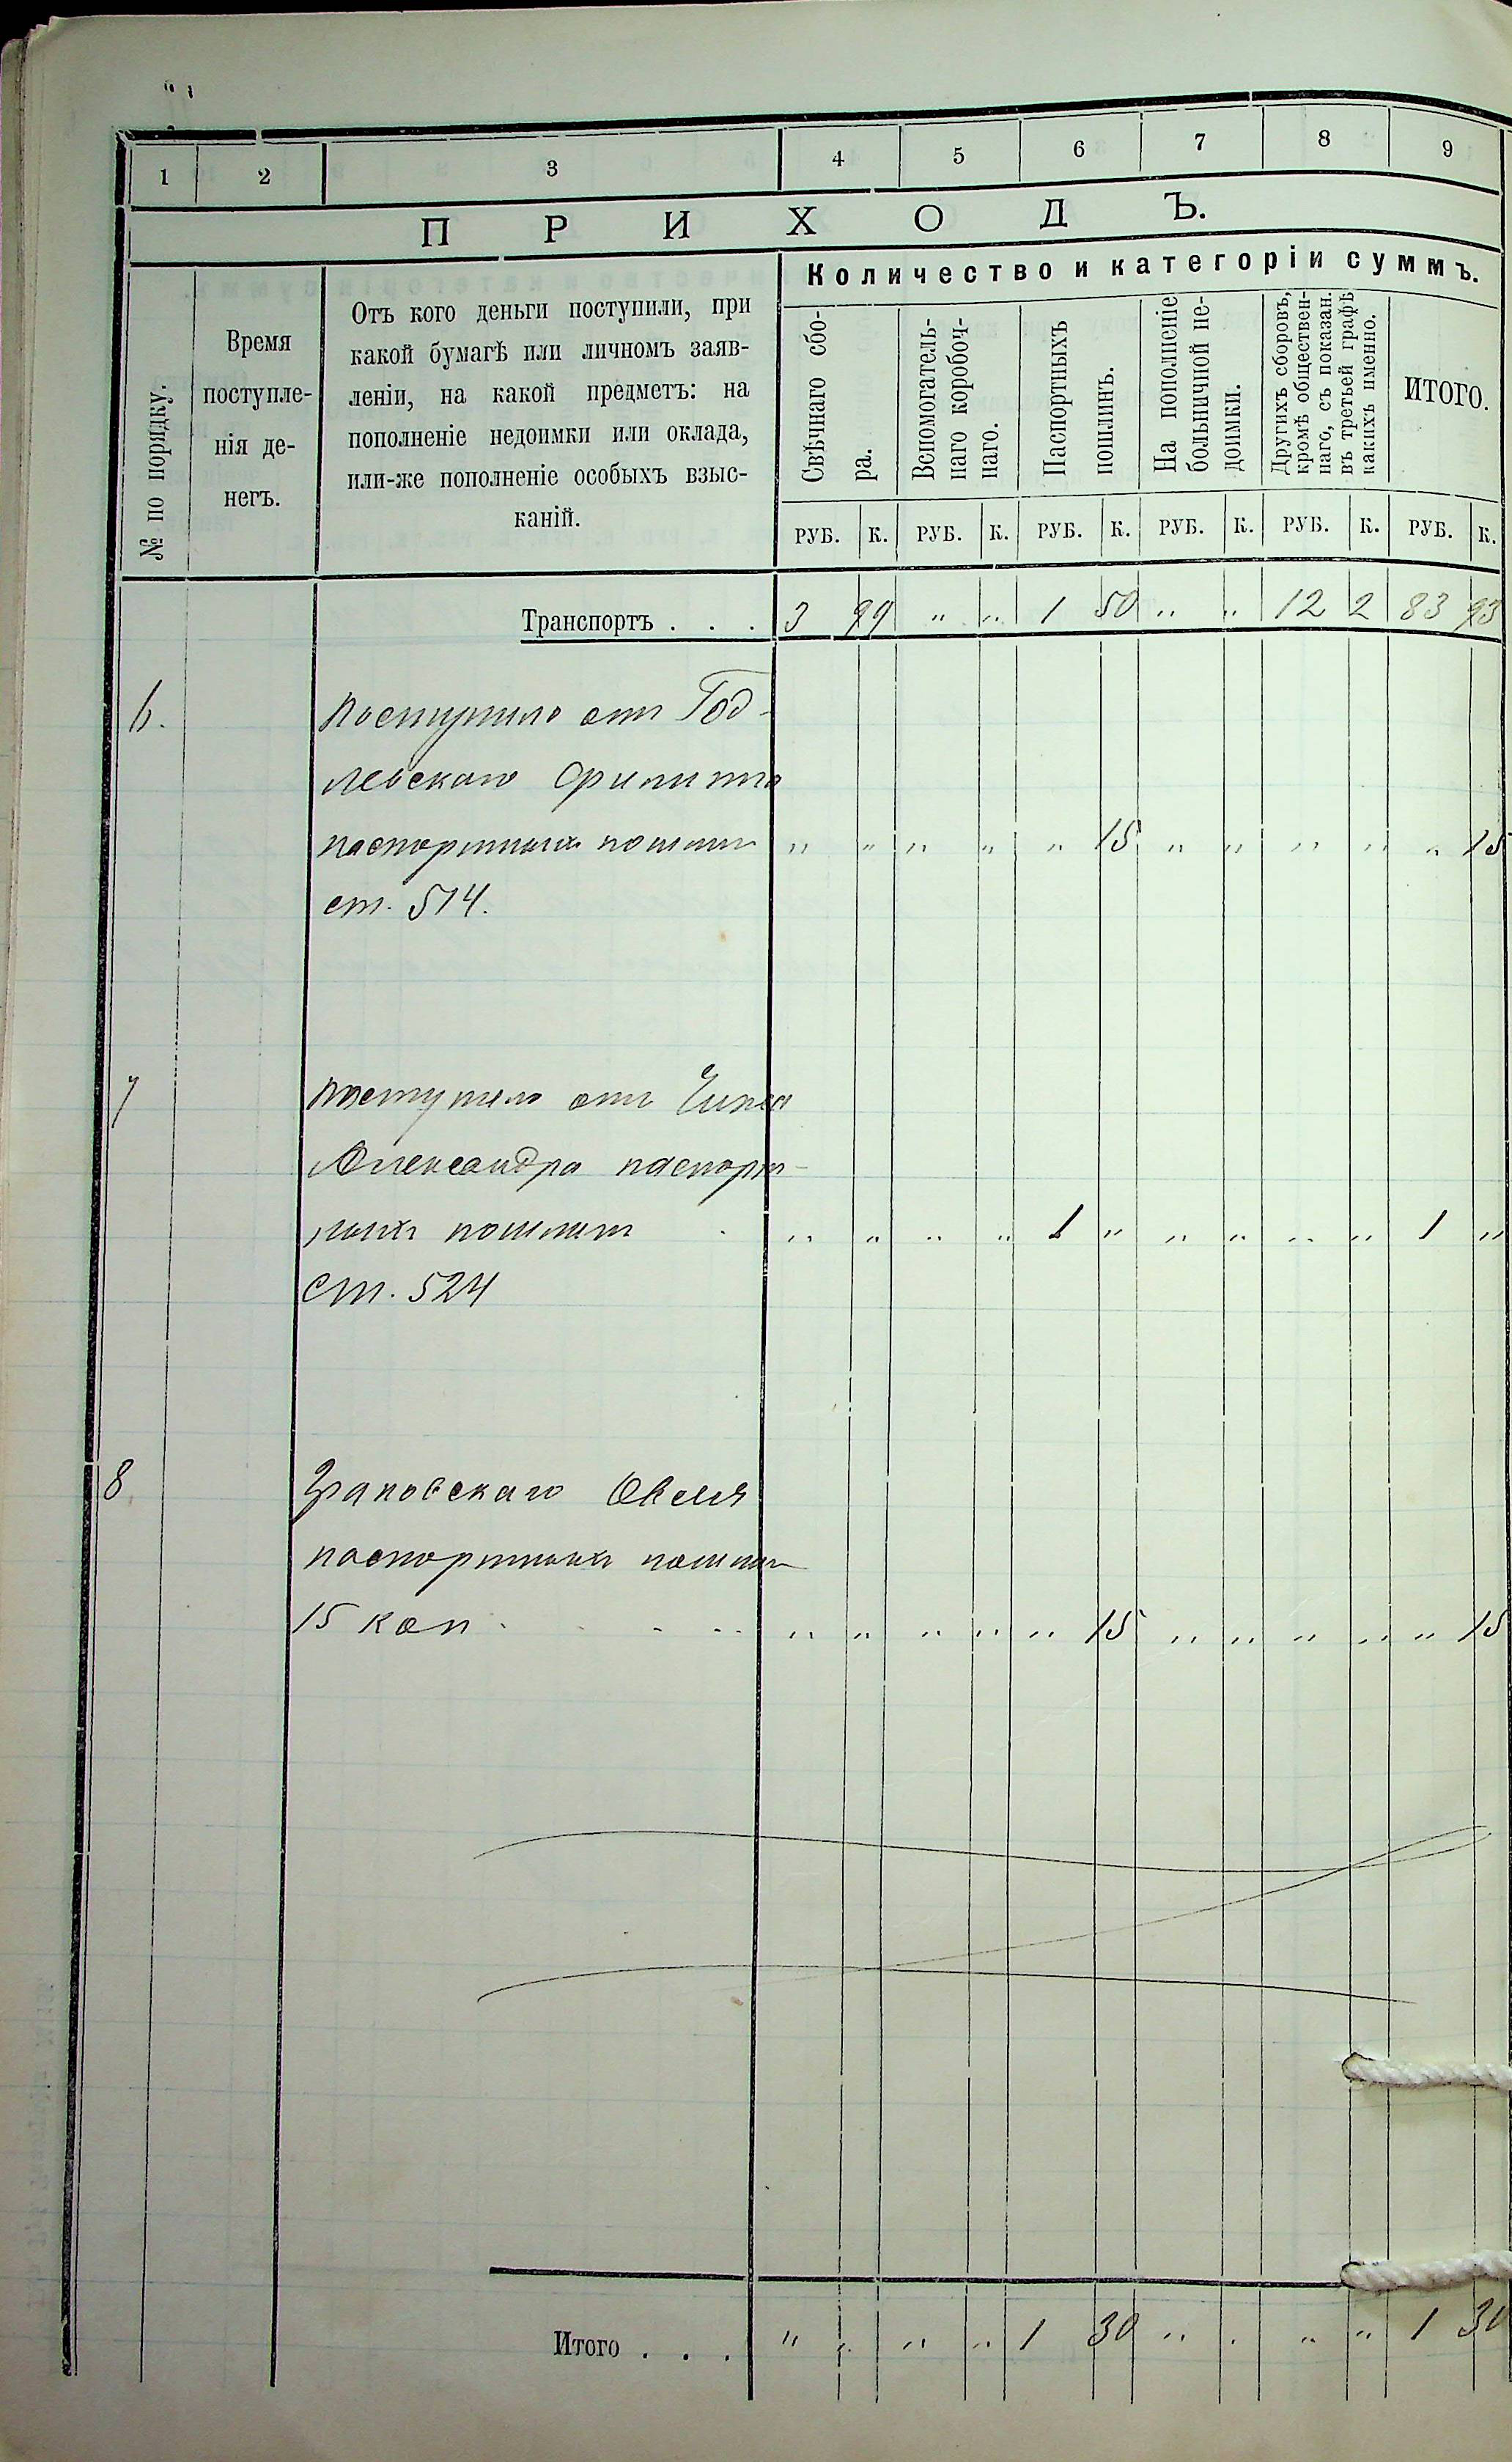 1 2 3 4 5 6 7 8 9
ПРИХОДЪ.
№ по порядку.
Время
поступле-
нія де-
негъ.
Отъ кого деньги поступили, при
какой бумагѣ или личномъ заяв-
леніи, на какой предметъ: на
пополненіе недоимки или оклада,
или-же пополненіе особыхъ взыс-
каній.
Количество и категоріи суммъ.
Свѣчнаго сбо-
ра.
Вспомогатель-
наго коробоч-
наго.
Паспортныхъ
пошлинъ.
На пополненіе
больничной не-
доимки.
Другихъ сборовъ,
кромѣ обществен-
наго, съ показан.
въ третьей графѣ
какихъ именно.
ИТОГО.
РУБ. К. РУБ. К. РУБ. К. РУБ. К. РУБ. К. РУБ. К.
Транспортъ . . . 3 „ „ 1 50 „ „ 12 2 83 93
6. Поступило отъ Год-
левскаго Филиппа
паспортныхъ пошлин „ „ „ „ „ 15 „ „ „ „ „ 15
ст. 514.
7 Поступило отъ
Александра паспорт-
ныхъ пошлин „ „ „ „ 1 „ „ „ „ „ 1 „
ст. 524
8 паспортныхъ пошлин
15 коп. „ „ „ „ „ 15 „ „ „ „ „ 15
Итого . . . „ „ „ „ 1 30 „ „ „ „ 1 30